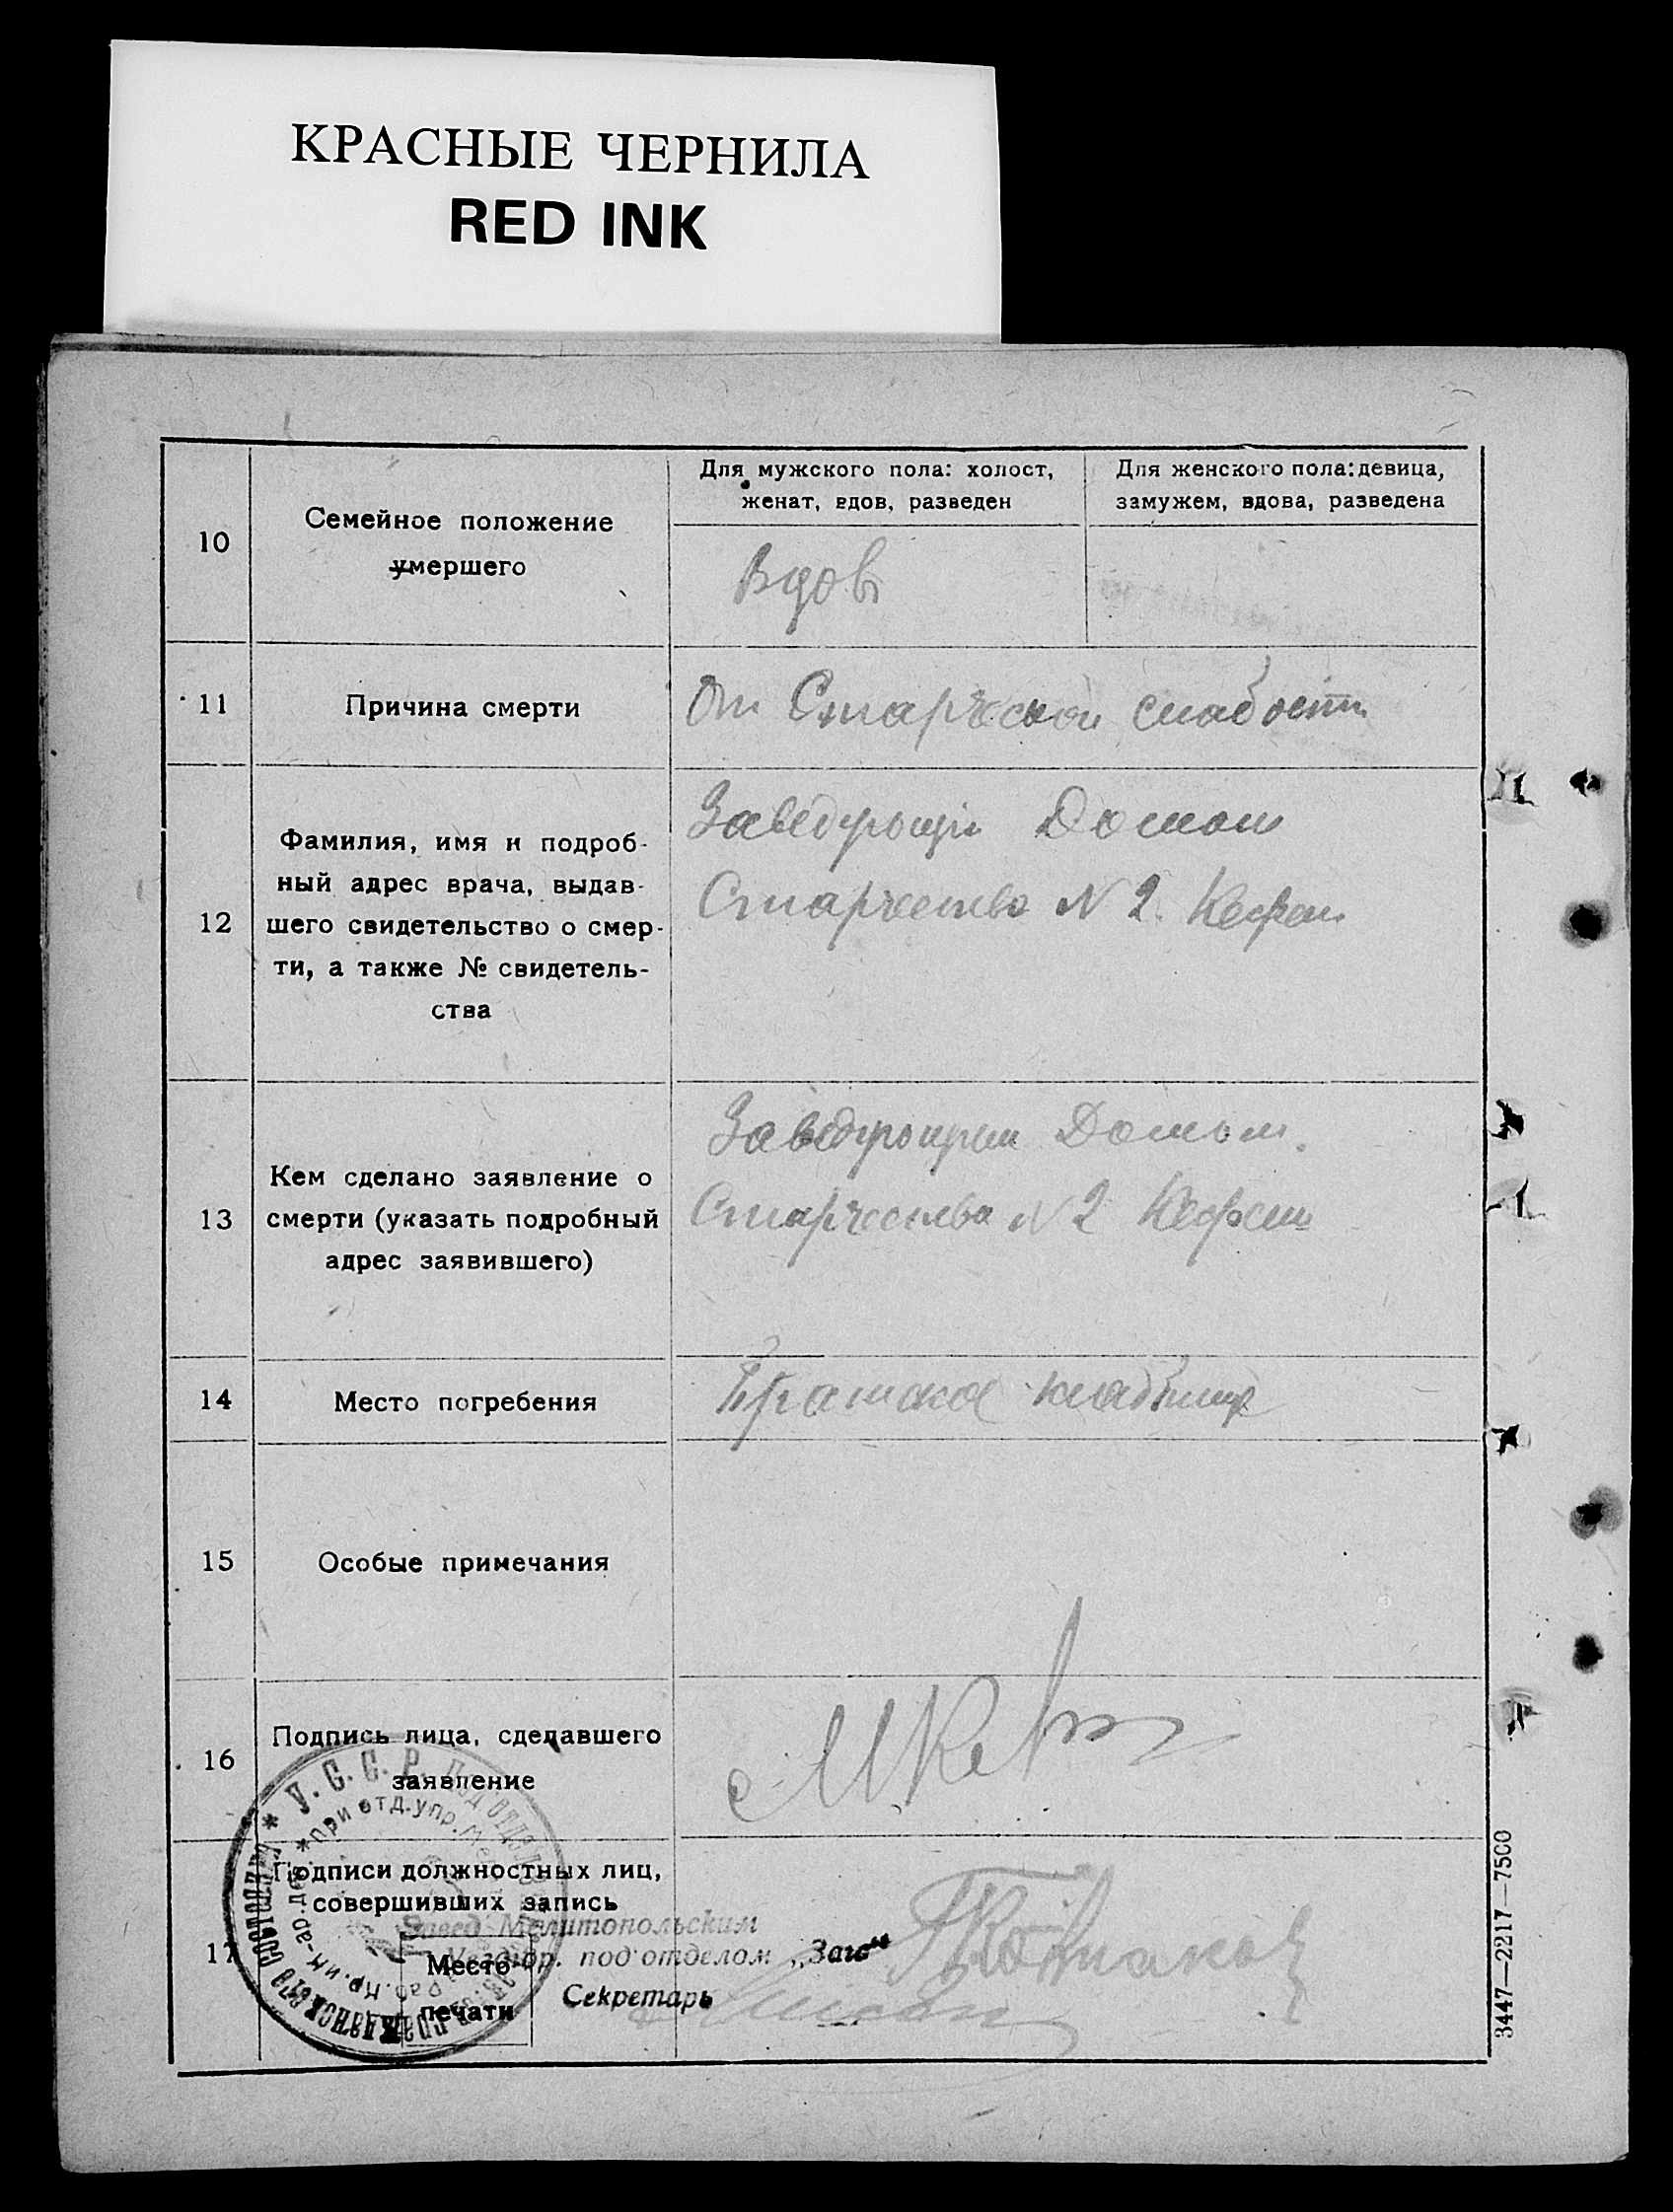 КРАСНЫЕ ЧЕРНИЛА
RED INK
10
Семейное положение
умершего
Для мужского пола: холост,
женат, вдов, разведен
Для женского пола: девица,
замужем, вдова, разведена
Вдов
11
Причина смерти
От Старческой слабости
12
Фамилия, имя и подроб-
ный адрес врача, выдав-
шего свидетельство о смер-
ти, а также № свидетель-
ства
Заведующий Домом
Старчества N 2
13
Кем сделано заявление о
смерти (указать подробный
адрес заявившего)
Заведующий Домом
Старчества N 2
14
Место погребения
Братское кладбище
15
Особые примечания
16
Подпись лица, сделавшего
заявление
17
Подписи должностных лиц,
совершивших запись
Место
печати
* У. С. С. Р. Под'отдел
* при отд. упр.
Завед. Мелитопольским
под'отделом „Загс“
Секретарь
3447—2217—7500